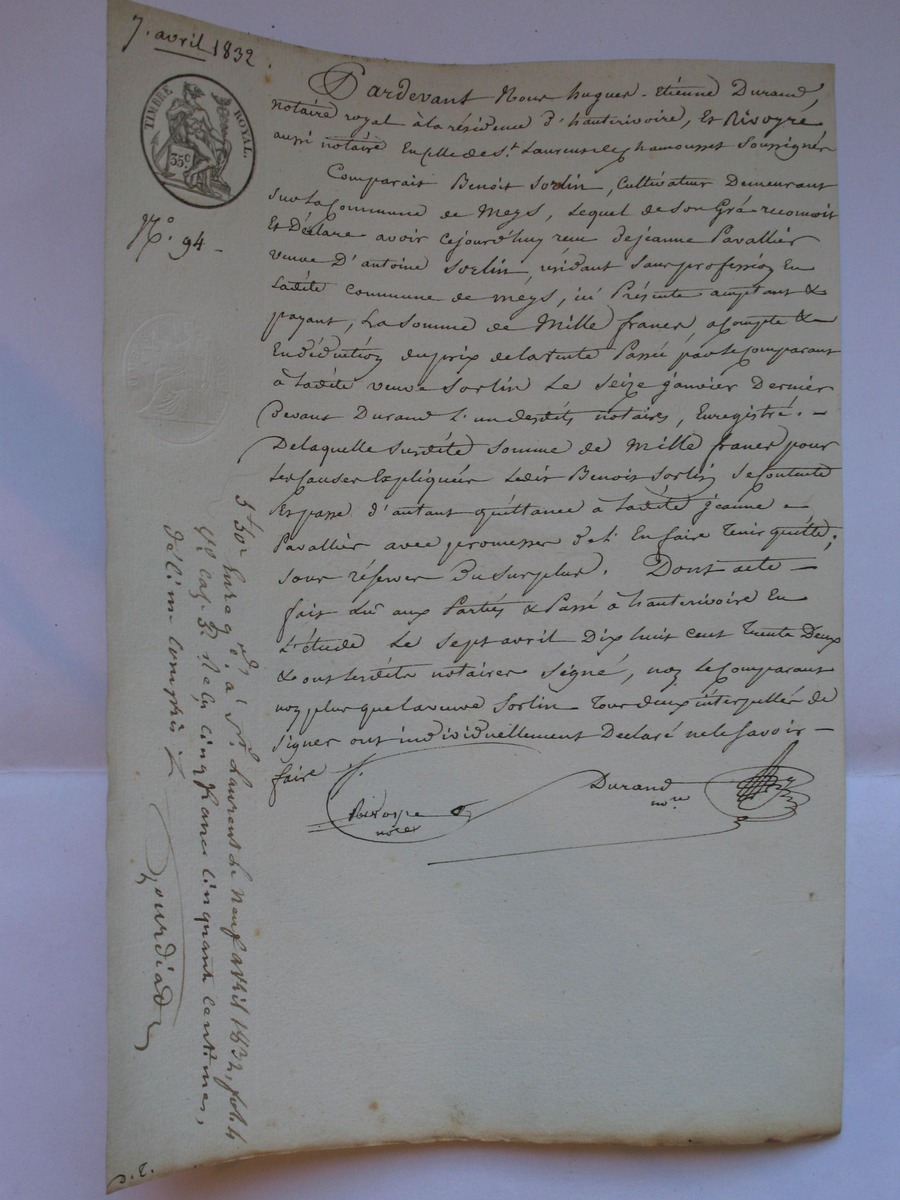 7. avril 1832.
TIMBRE ROYAL.
35c
N.o 94
Pardevant Nous hugues-Etienne Durand,
notaire royal à la résidence d'hauterivoire, et Rivoyre
aussi notaire En Celle de St. Laurent de Chamousset Soussignés
Comparait Benoit Sorlin, Cultivateur Demeurant
Sur la Commune de Meys, lequel de Son Gré reconnoit
Et Déclare avoir cejourd'huy reçu de jeanne Pavallier
veuve D'antoine Sorlin, residant Sans profession En
Ladite Commune de meys, ici Présente acceptant &
payant, La Somme de Mille francs, acompte &
En déduction du prix de la vente Passée par le Comparant
à Ladite veuve Sorlin Le Seize janvier Dernier
Devant Durand l'un desdits notaires, Enregistré. -
De laquelle Susdite Somme de Mille francs pour
les Causes Expliquées ledit Benoit Sorlin Se Contente
Et passe d'autant quittance à Ladite jeanne -
Pavallier avec promesses de l'En faire tenir quitte;
Sous réserves Du Surplus. Dont acte -
fait Lu aux Parties & Passé à hauterivoire En
L'étude Le Sept avril Dix huit cent Trente Deux
& ont lesdits notaires Signé, non le Comparant
non plus que la veuve Sorlin Tous deux interpellés de
Signer ont individuellement Déclaré ne le Savoir -
faire
Rivoyre
nore
Durand
nore
Enreg.é à St. Laurent Le Neuf avril 1832, fol. 4
Reçu Cinq francs Cinquante Centimes,
Décime Compris